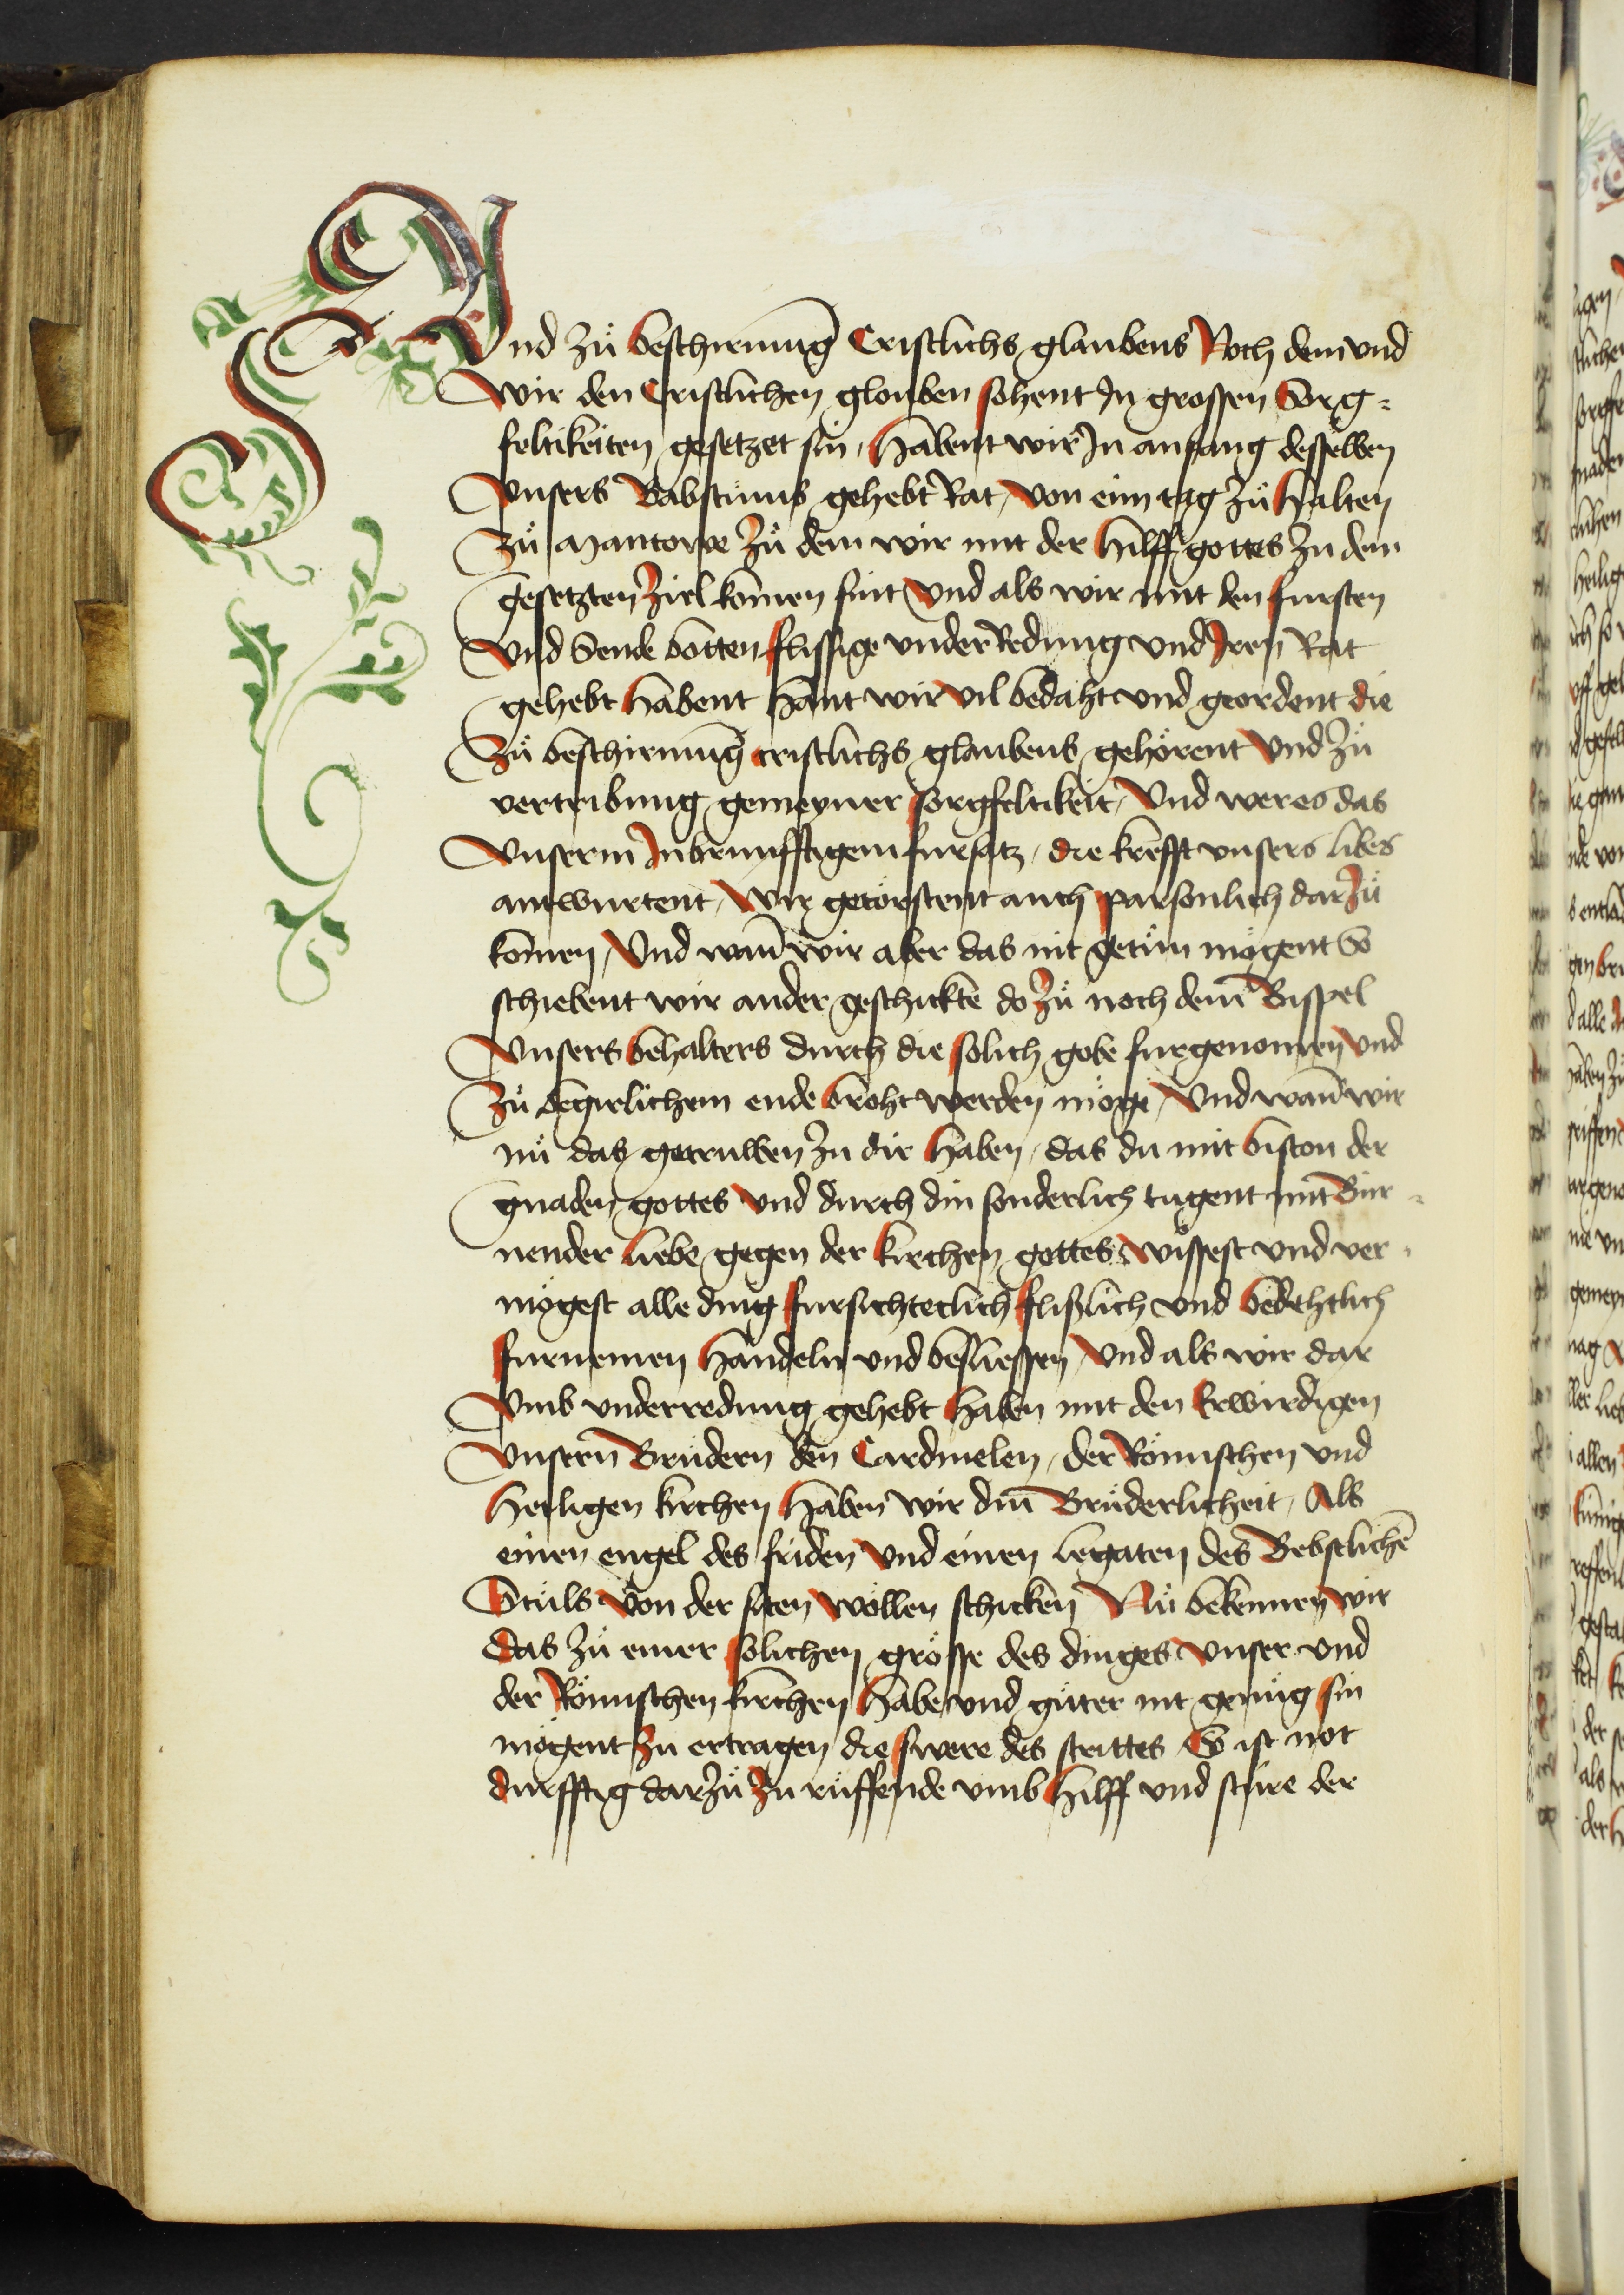 Vnd zů beschirmung Cristlichs glaubens Noch dem vnd
wir den Cristlichen glouben sehent Jn grossen Sorg-
feltikeiten gesetzet sin, habent wir Jn anfang desselben
Vnsers Babstůms gehebt Rat, von eim tag zů halten
Zů Mantowe Zů dem wir mit der Hilff gottes zu dem
gesetzten Ziel komen sint Vnd als wir mit den fursten
Vnd Sende botten flissige vnder Redung vnd Jren Rat
gehebt habent Hant wir vil bedaht vnd geordent die
Zů beschirmung cristlichs glaubens gehörent Vnd zů
vertribung gemeyner sorgfeltikeit, Vnd wer es das
Vnserm Jnbrunfftigem fursatz, die krefft vnsers libes
antwurtent, Wir getörstent auch parsonlich dar Zů
komen, Vnd wañ wir aber das nit getůn mögent So
schiebent wir ander geschickte do Zů noch dem Bispel
Vnsers behalters durch die solich gobe furgenomen vnd
Zů begirlichem ende broht werden möge, Vnd wañ wir
nů das getruwen zu dir haben, das du mit biston der
gnaden gottes Vnd durch din sonderlich tugent mit Bür-
nender liebe gegen der kirchen gottes wissest vnd ver-
mögest alle ding fursichteclich flißlich vnd bedehtlich
furnemen handeln vnd besliessen, Vnd als wir dar
Vmb vnderredung gehebt haben mit den Erwirdigen
Vnsern Brüdern den Cardinelen, der Römischen vnd
heiligen kirchen haben wir din Brůderlicheit, Als
einen engel des friden Vnd einen legaten des Bebstlichē
Stůls von der siten wöllen schicken Nů bekennen wir
das zů einer solichen grösse des dinges vnser vnd
der Römischen kirchen habe vnd güter nit genůg sin
mögent zu ertragen die swere des strittes So ist not
durfftig dar Zů Zu rüffende vmb Hilff vnd stüre der